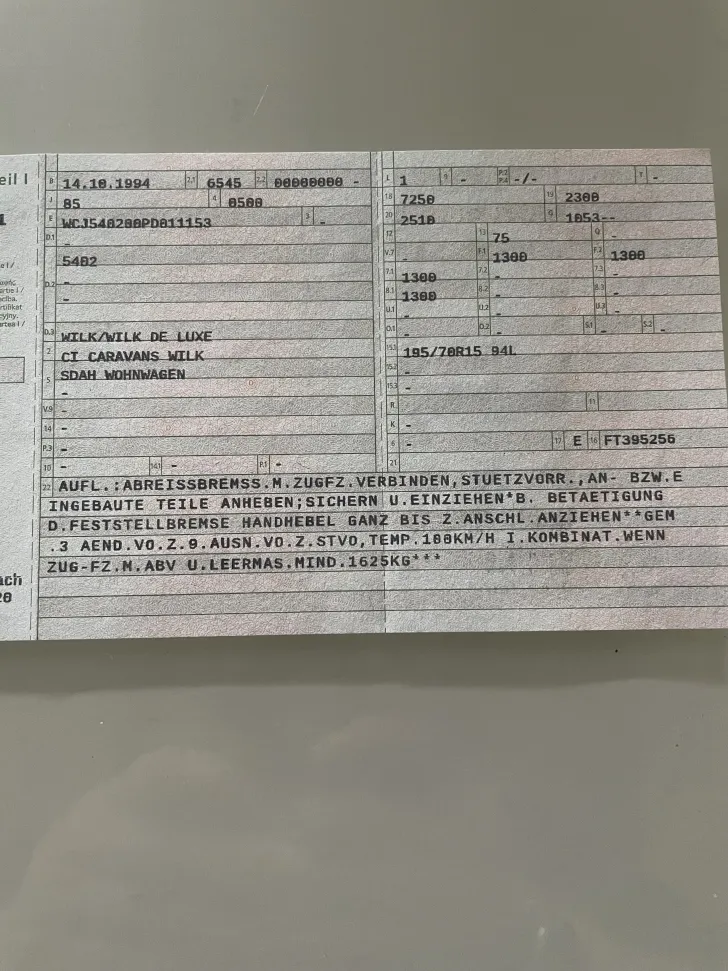 eil I
B 14.10.1994 2.1 6545 2.2 00000000 -
J 05 4 0500
E WCJ540200PD011153 3 -
D.1 -
5402
D.2 -
-
D.3 WILK/WILK DE LUXE
2 CI CARAVANS WILK
5 SDAH WOHNWAGEN
-
V.9 -
14 -
P.3 -
10 - 14.1 - P.1 -
L 1 9 - P.2 P.4 -/- T -
18 7250 19 2300
20 2510 G 1053--
12 - 13 75 Q -
V.7 - F.1 1300 F.2 1300
7.1 1300 7.2 - 7.3 -
8.1 1300 8.2 - 8.3 -
U.1 - U.2 - U.3 -
O.1 - O.2 - S.1 - S.2 -
15.1 195/70R15 94L
15.2 -
15.3 -
R - 11
K -
6 - 17 E 16 FT395256
21
22 AUFL.:ABREISSBREMSS.M.ZUGFZ.VERBINDEN,STUETZVORR.,AN- BZW.E
INGEBAUTE TEILE ANHEBEN;SICHERN U.EINZIEHEN*B. BETAETIGUNG
D.FESTSTELLBREMSE HANDHEBEL GANZ BIS Z.ANSCHL.ANZIEHEN**GEM
.3 AEND.VO.Z.9.AUSN.VO.Z.STVO,TEMP.100KM/H I.KOMBINAT.WENN
ZUG-FZ.M.ABV U.LEERMAS.MIND.1625KG***
ach
20